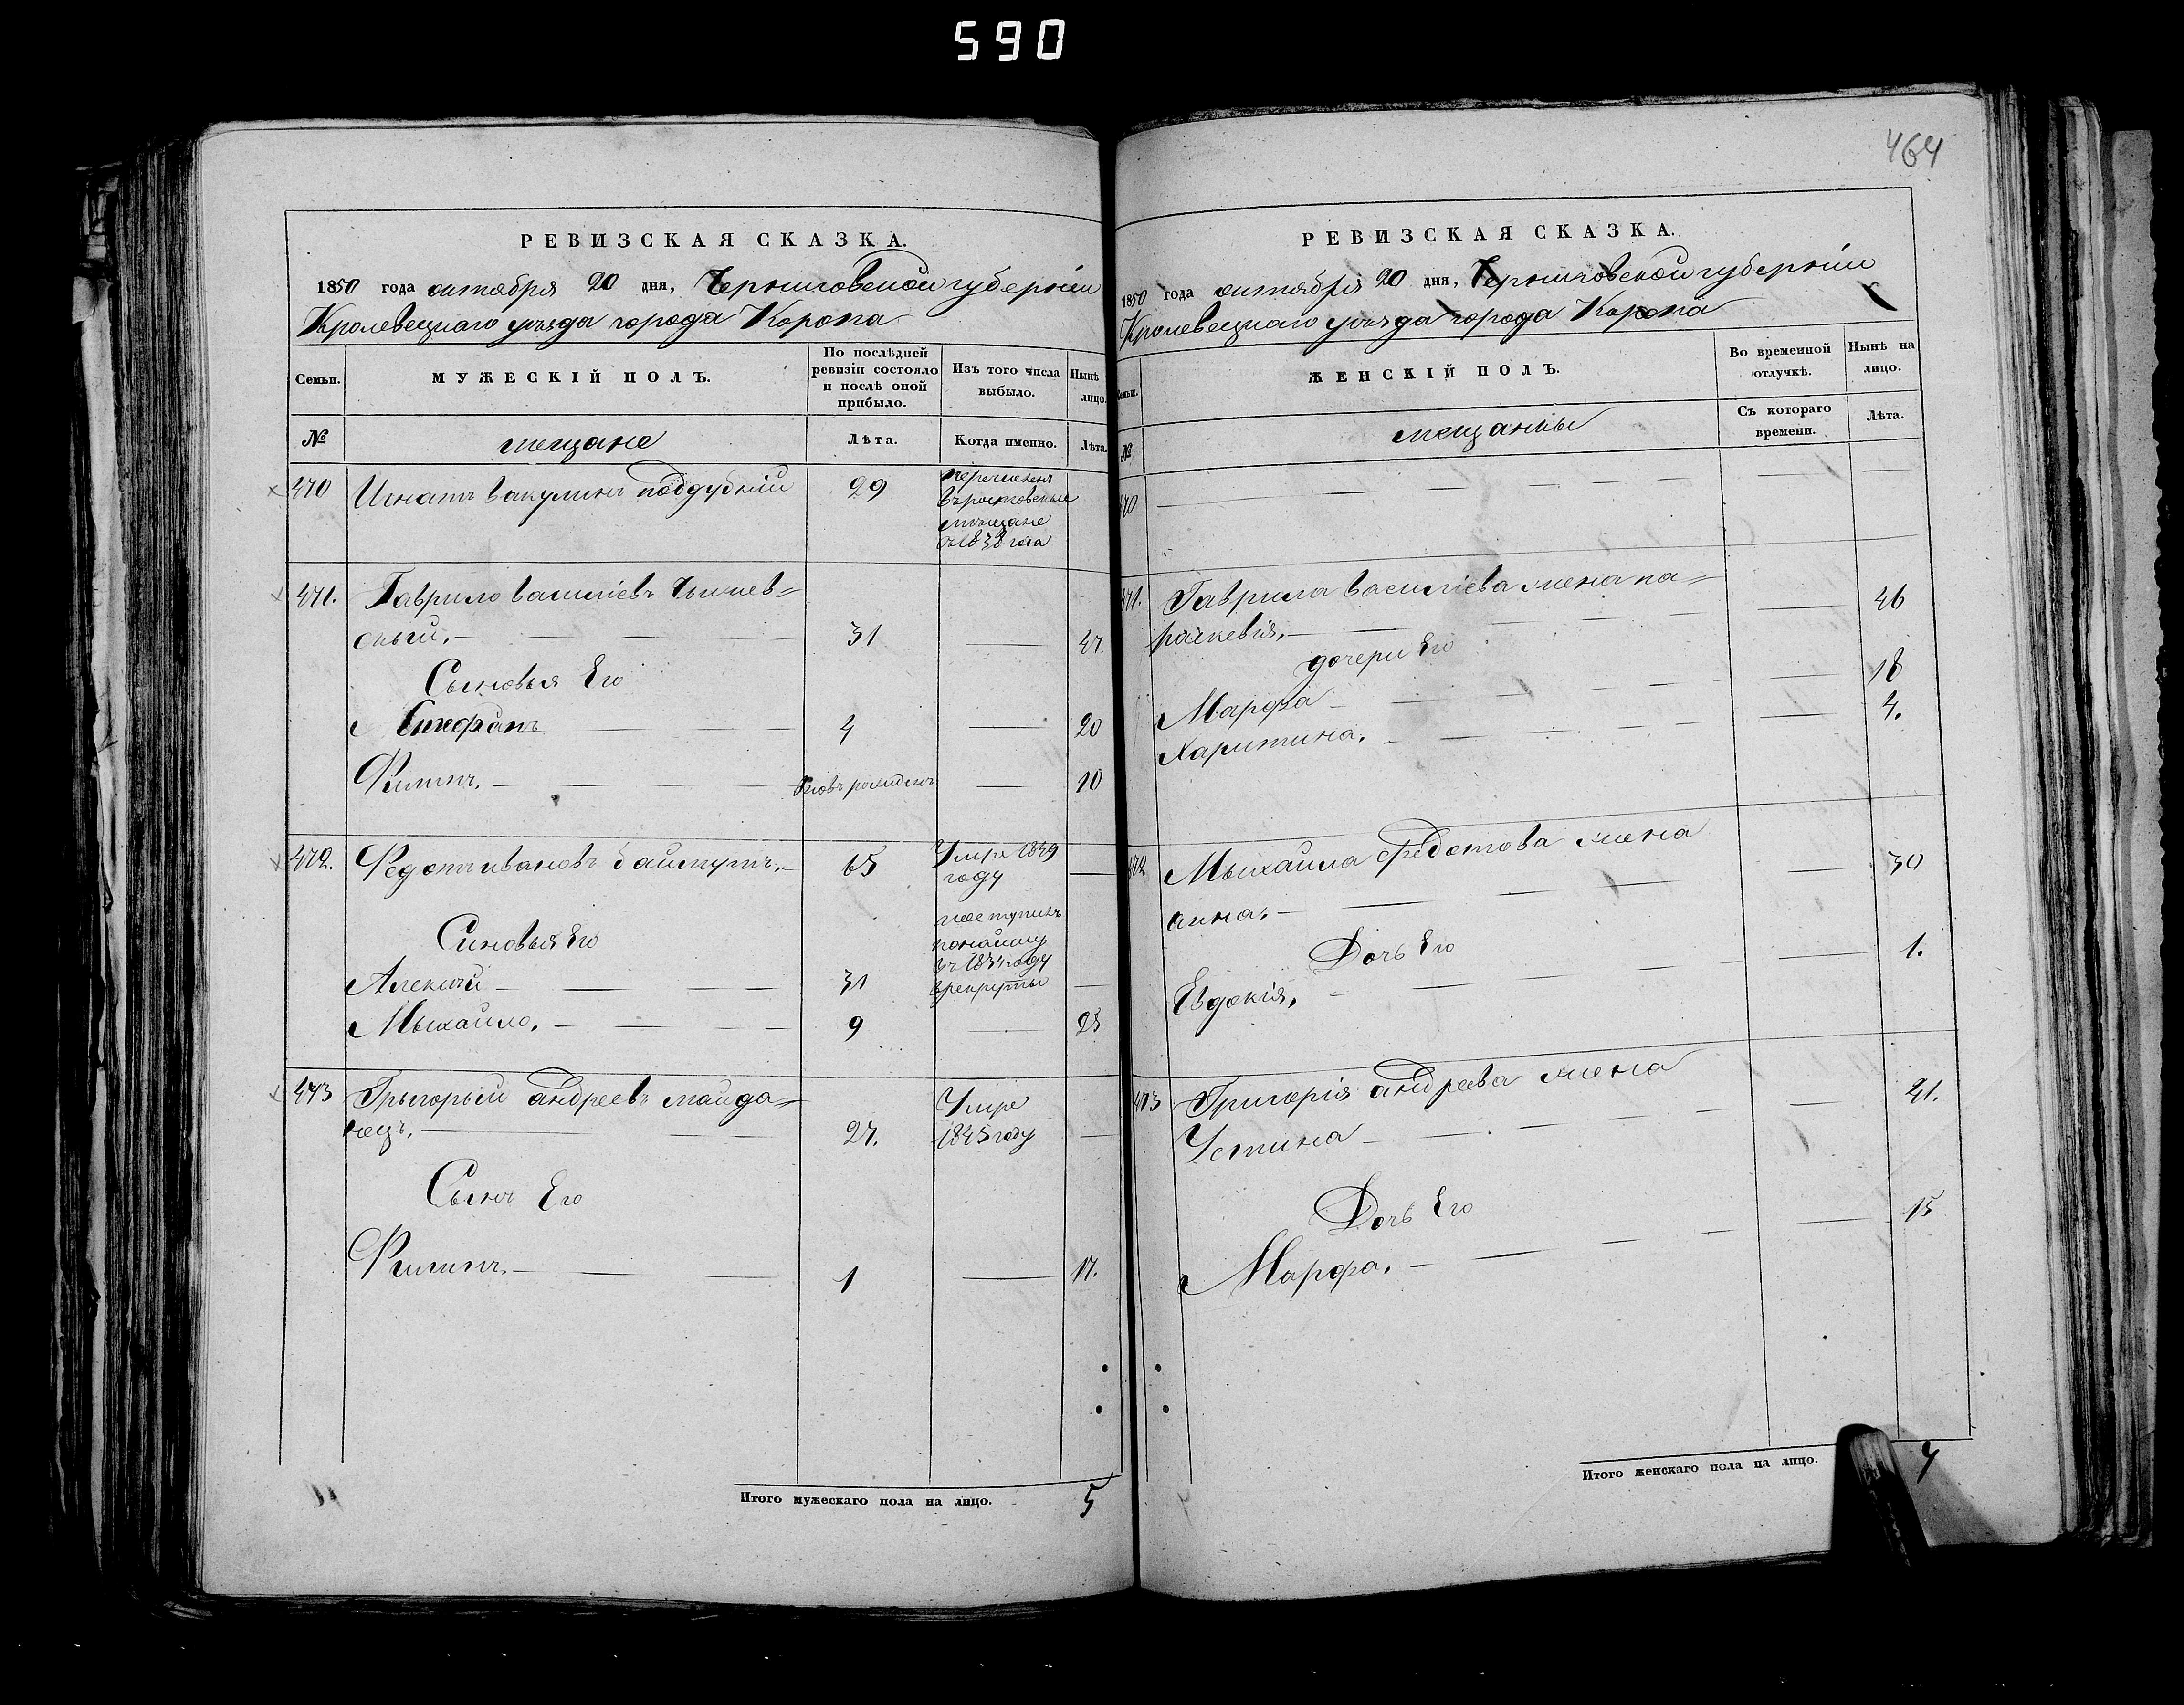 590
РЕВИЗСКАЯ СКАЗКА.
1850 года октября 20 дня, Черниговской губерніи
Кролевецкаго уѣзда города Коропа
Семьи.
МУЖЕСКІЙ ПОЛЪ.
По послѣдней ревизіи состояло и послѣ оной прибыло.
Изъ того числа выбыло.
Нынѣ лицо.
№
мещане
Лѣта.
Когда именно.
Лѣта.
470 Игнатъ вакулинъ поддубній 29
перечисленъ
въ ростовские
мещане
съ 1838 года
471. Гаврило василіевъ
ский. — 31 — 47.
Сыновья Его
Стефанъ — 4 — 20
Филипъ. — вновь рожденъ — 10
472. Федотъ ивановъ 65 Умре 1849
году —
Сыновья Его
поступилъ
понайму
въ 1834 году
врекруты
Алексѣй — 31 —
Мыхайло. — 9 — 25
473 Грыгорый андреевъ майда=
нецъ. — 27. Умре
1845 году —
Сынъ Его
Филипъ. — 1 — 17.
Итого мужескаго пола на лицо. 5
464
РЕВИЗСКАЯ СКАЗКА.
1850 года октября 20 дня, Черниговской губерніи
Кролевецкаго уѣзда города Коропа
Семьи.
ЖЕНСКІЙ ПОЛЪ.
Во временной отлучкѣ.
Нынѣ на лицо.
№
мещанкы
Съ котораго времени.
Лѣта.
470 —
471. Гаврила василіева жена па=
раскевія. — 46
дочери Его
Марфа — 18
Харитина. — 4.
472 Мыхайла федотова жена
анна. — 30
Дочь Его
Евдокія. — 1.
473 Григорія андреева жена
Устина — 41.
Дочь Его
Марфа. — 15
Итого женскаго пола на лицо. 7